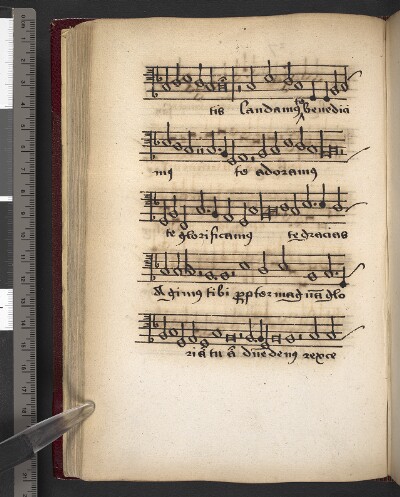 tis laudamus te benedici
mus te adoramus
te glorificamus te gracias
Agimus tibi propter magnā glo
riā tuā dn̄e deus rex ce